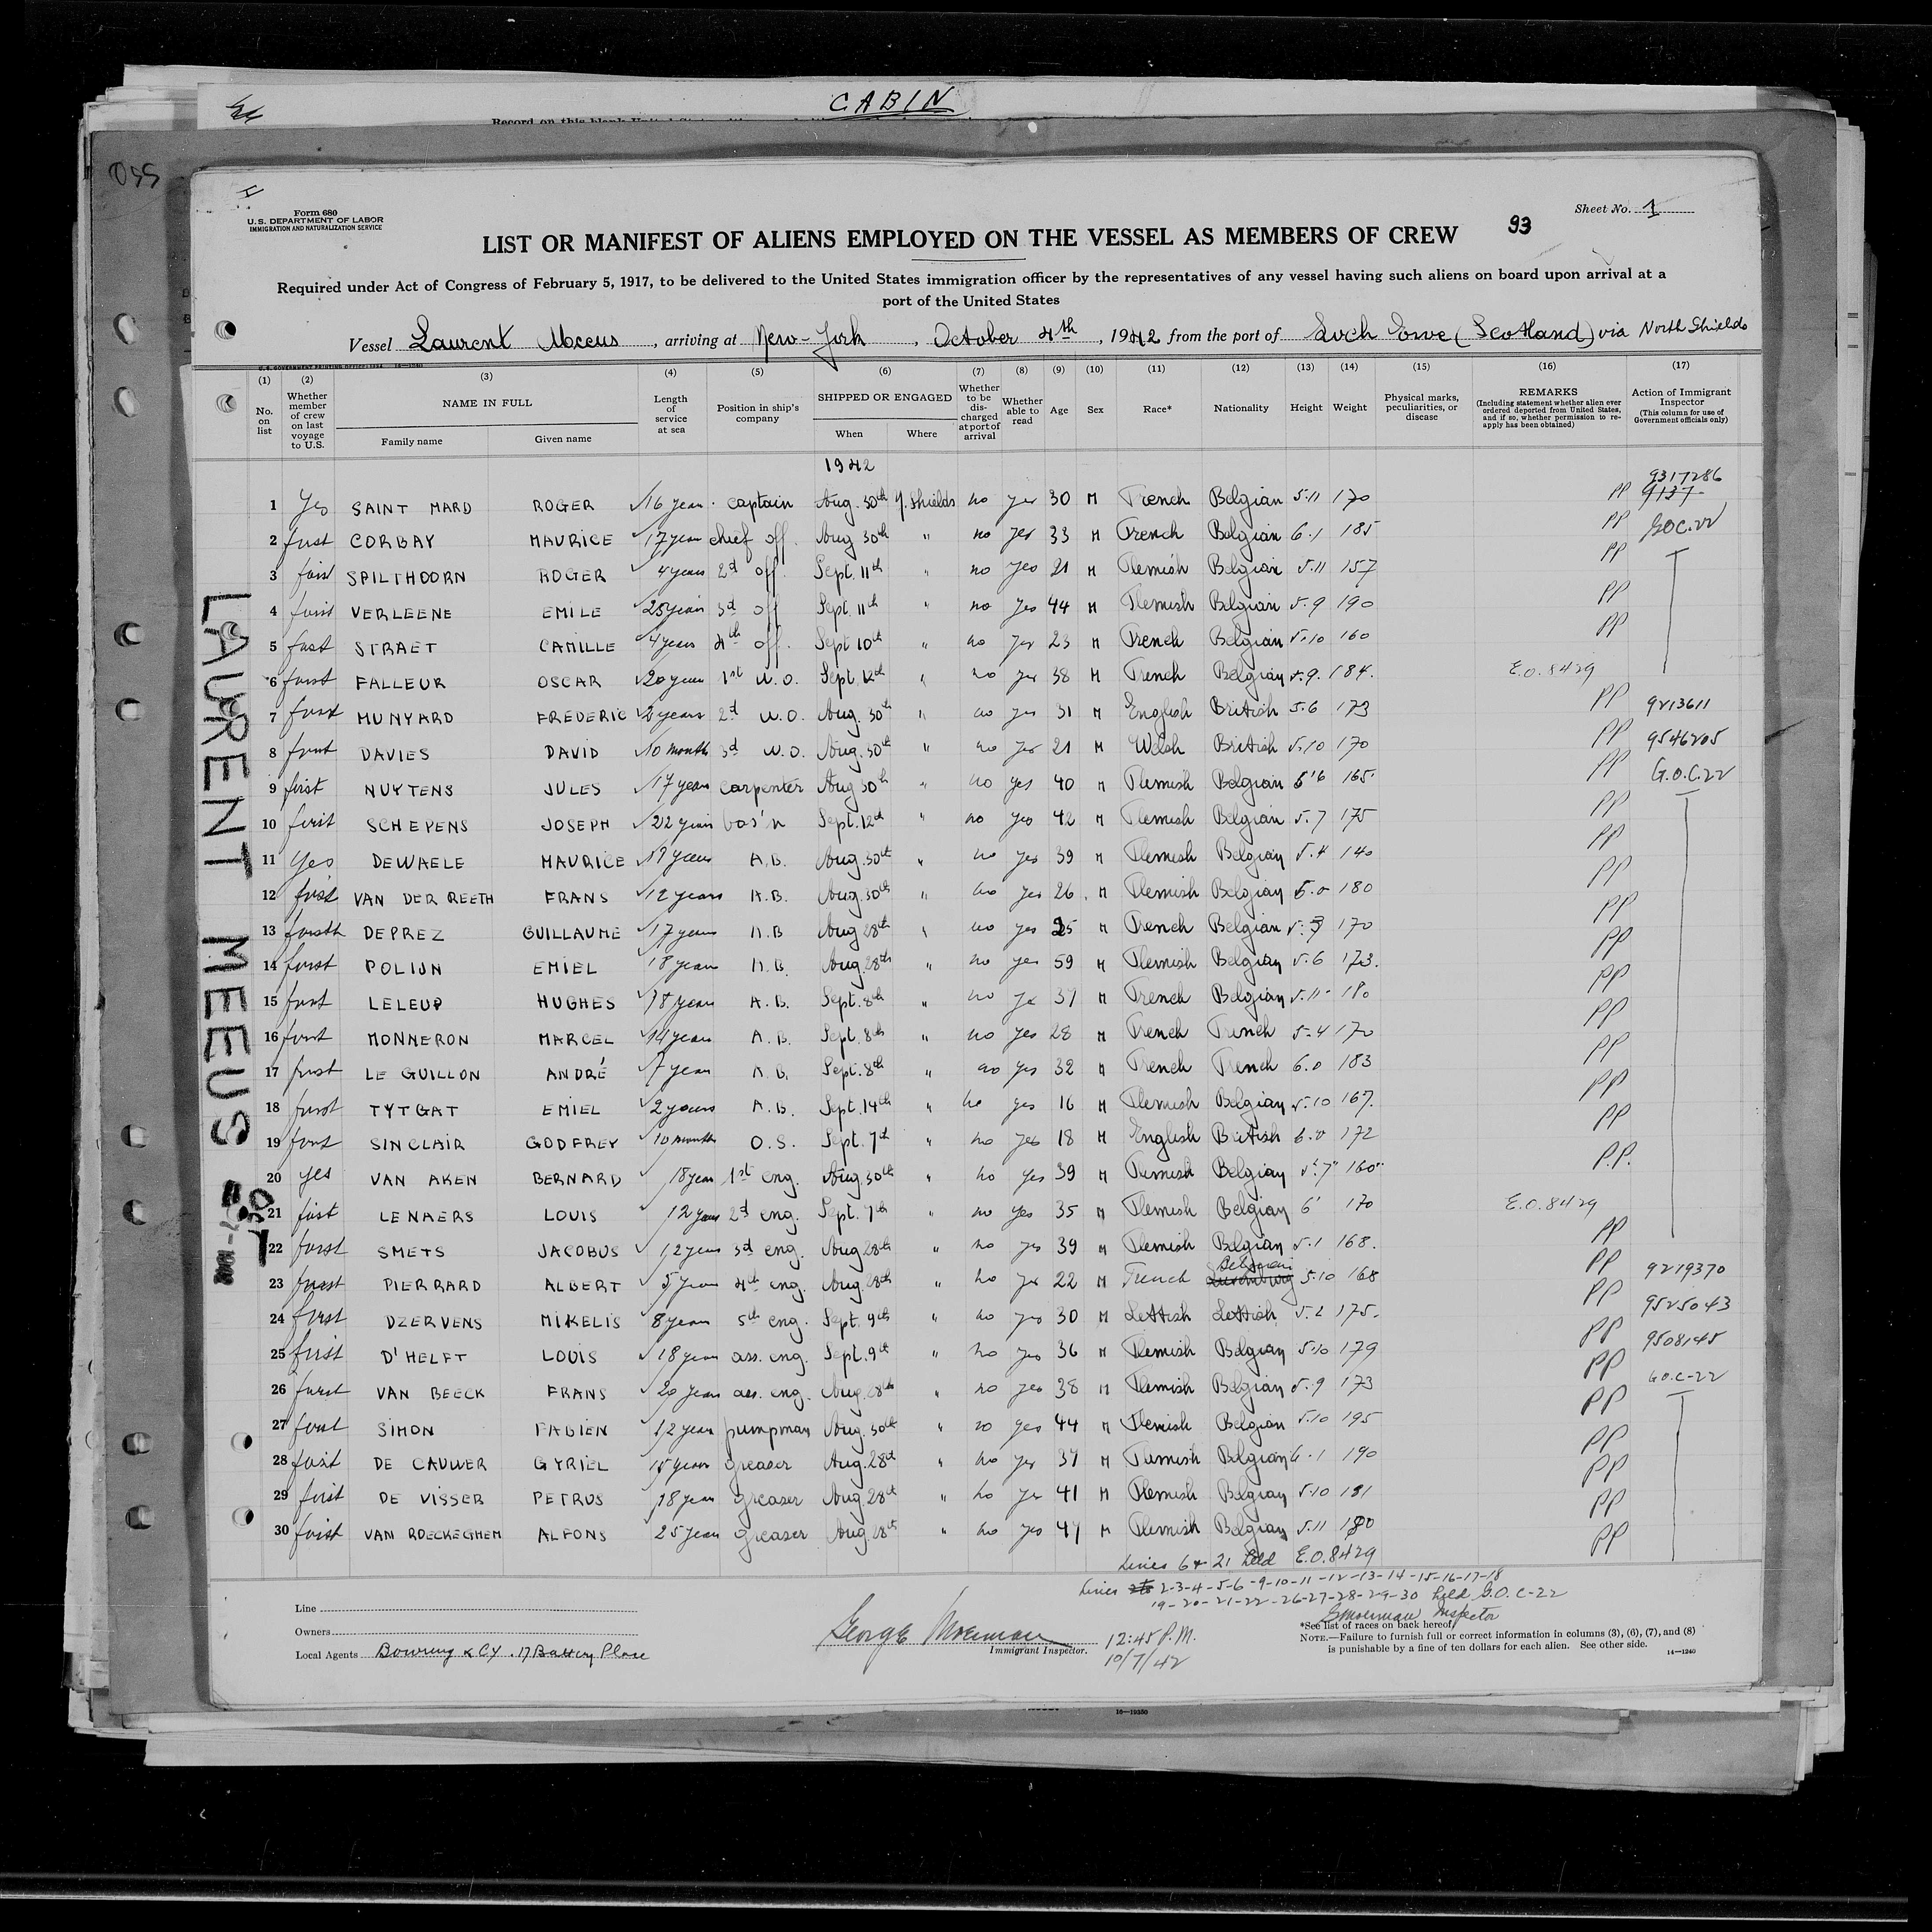 CABIN
Form 680
U.S. DEPARTMENT OF LABOR
IMMIGRATION AND NATURALIZATION SERVICE
Sheet No. 1
93
LIST OR MANIFEST OF ALIENS EMPLOYED ON THE VESSEL AS MEMBERS OF CREW
Required under Act of Congress of February 5, 1917, to be delivered to the United States immigration officer by the representatives of any vessel having such aliens on board upon arrival at a
port of the United States
Vessel Laurent Meeus, arriving at New-York, October 4th, 1942 from the port of Loch Ewe (Scotland) via North Shields
(1) (2) (3) (4) (5) (6) (7) (8) (9) (10) (11) (12) (13) (14) (15) (16) (17)
No. on list
Whether member of crew on last voyage to U.S.
NAME IN FULL
Family name
Given name
Length of service at sea
Position in ship's company
SHIPPED OR ENGAGED
When
Where
Whether to be discharged at port of arrival
Whether able to read
Age
Sex
Race*
Nationality
Height
Weight
Physical marks, peculiarities, or disease
REMARKS
(Including statement whether alien ever ordered deported from United States, and if so, whether permission to reapply has been obtained)
Action of Immigrant Inspector
(This column for use of Government officials only)
1942
9317286
1 Yes SAINT MARD ROGER 16 year captain Aug. 30th N. Shields no yes 30 M French Belgian 5.11 170 PP
2 first CORBAY MAURICE 17 year chief off. Aug 30th " no yes 33 M French Belgian 6.1 185 PP GOC.22
3 first SPILTHOORN ROGER 4 years 2d off. Sept. 11th " no yes 21 M Flemish Belgian 5.11 157 PP
4 first VERLEENE EMILE 25 years 3d off Sept. 11th " no yes 44 M Flemish Belgian 5.9 190 PP
5 first STRAET CAMILLE 4 years 4th off. Sept 10th " no yes 23 M French Belgian 5.10 160 PP
6 first FALLEUR OSCAR 20 year 1st W.O. Sept. 12th " no yes 38 M French Belgian 5.9. 184. E.O. 8429
7 first MUNYARD FREDERIC 2 years 2d W.O. Aug. 30th " no yes 31 M English British 5.6 173 PP 9213611
8 first DAVIES DAVID 10 month 3d W.O. Aug. 30th " no yes 21 M Welsh British 5.10 170 PP 9546205
9 first NUYTENS JULES 17 years carpenter Aug 30th " no yes 40 M Flemish Belgian 5'6 165 PP G.O.C.22
10 first SCHEPENS JOSEPH 22 years bos'n Sept. 12th " no yes 42 M Flemish Belgian 5.7 175 PP
11 Yes DEWAELE MAURICE years A.B. Aug. 30th " no yes 39 M Flemish Belgian 5.4 140 PP
12 first VAN DER REETH FRANS 12 years A.B. Aug. 30th " no yes 26 M Flemish Belgian 6.0 180 PP
13 first DEPREZ GUILLAUME 17 years A.B Aug 28th " no yes 25 M French Belgian 170 PP
14 first POLIJN EMIEL 18 years A.B. Aug. 28th " no yes 59 M Flemish Belgian 5.6 173. PP
15 first LELEUP HUGHES 18 years A.B. Sept. 8th " no yes 37 M French Belgian 5.11 180 PP
16 first MONNERON MARCEL 14 years A.B. Sept. 8th " no yes 28 M French French 5.4 170 PP
17 first LE GUILLON ANDRÉ 7 year A.B. Sept. 8th " no yes 32 M French French 6.0 183 PP
18 first TYTGAT EMIEL 2 years A.B. Sept. 14th " no yes 16 M Flemish Belgian 5.10 167. PP
19 first SINCLAIR GODFREY 10 months O.S. Sept. 7th " no yes 18 M English British 6.0 172 PP
20 yes VAN AKEN BERNARD 18 year 1st eng. Aug. 30th " no yes 39 M Flemish Belgian 5'.7" 160 P.P.
21 first LENAERS LOUIS 12 years 2d eng. Sept. 7th " no yes 35 M Flemish Belgian 6' 170 E.O. 8429
22 first SMETS JACOBUS 12 years 3d eng. Aug 28th " no yes 39 M Flemish Belgian 5.1 168. PP
23 first PIERRARD ALBERT 5 years 4th eng. Aug. 28th " no yes 22 M French Belgian 5.10 168 PP 9219370
24 first DZERVENS MIKELIS 8 years 5th eng. Sept. 9th " no yes 30 M Lettish Lettish 5.2 175. PP 9525043
25 first D'HELFT LOUIS 18 years ass. eng. Sept. 9th " no yes 36 M Flemish Belgian 5.10 179 PP 9508145
26 first VAN BEECK FRANS 20 years ass. eng. Aug. 28th " no yes 38 M Flemish Belgian 5.9 173 PP G.O.C-22
27 first SIMON FABIEN 12 year pumpman Aug. 30th " no yes 44 M Flemish Belgian 5.10 195 PP
28 first DE CAUWER GYRIEL 15 years greaser Aug. 28th " no yes 37 M Flemish Belgian 6.1 190 PP
29 first DE VISSER PETRUS 18 year greaser Aug. 28th " no yes 41 M Flemish Belgian 5.10 181 PP
30 first VAN ROECKEGHEM ALFONS 25 year greaser Aug. 28th " no yes 47 M Flemish Belgian 5.11 180 PP
PP
LAURENT MEEUS
Lines 6 & 21 held E.O. 8429
Lines 2-3-4-5-6-9-10-11-12-13-14-15-16-17-18
19-20-21-22-26-27-28-29-30 held G.O. C-22
Inspector
Line
Owners
Local Agents Bowring & Cy. 17 Battery Place
George
Immigrant Inspector.
12:45 P.M.
10/7/42
*See list of races on back hereof.
NOTE.—Failure to furnish full or correct information in columns (3), (6), (7), and (8)
is punishable by a fine of ten dollars for each alien. See other side.
14—1240